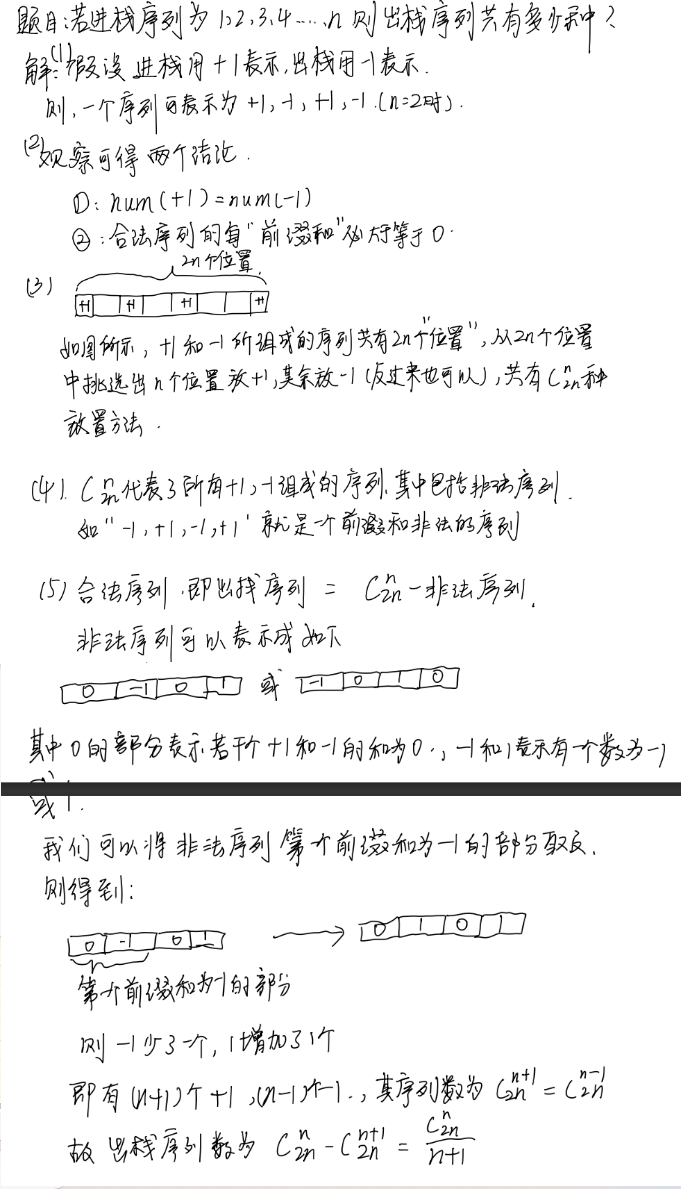 题目:若进栈序列为1,2,3,4……,n 则出栈序列共有多少种?
解:(1)假设进栈用+1表示,出栈用-1表示.
则,一个序列可表示为+1,-1,+1,-1.(n=2时).
(2)观察可得两个结论.
①:num(+1)=num(-1)
②:合法序列的每"前缀和"必大于等于0.
2n个位置
(3)
+1 +1 +1 +1
如图所示,+1和-1所组成的序列共有2n个"位置",从2n个位置
中挑选出n个位置放+1,其余放-1(反过来也可以),共有C_{2n}^{n}种
放置方法.
(4).C_{2n}^{n}代表了所有+1,-1组成的序列.其中包括非法序列.
如"-1,+1,-1,+1"就是一个前缀和非法的序列
(5)合法序列,即出栈序列 = C_{2n}^{n}-非法序列.
非法序列可以表示成如下
0 -1 0 1 或 -1 0 1 0
其中0的部分表示若干个+1和-1的和为0.,-1和1表示有一个数为-1
或1.
我们可以将非法序列第一个前缀和为-1的部分取反.
则得到:
0 -1 0 1 → 0 1 0 1
第一个前缀和为-1的部分
则-1少了一个,1增加了1个
即有(n+1)个+1,(n-1)个-1.,其序列数为C_{2n}^{n+1}=C_{2n}^{n-1}
故出栈序列数为 C_{2n}^{n}-C_{2n}^{n+1}=\frac{C_{2n}^{n}}{n+1}